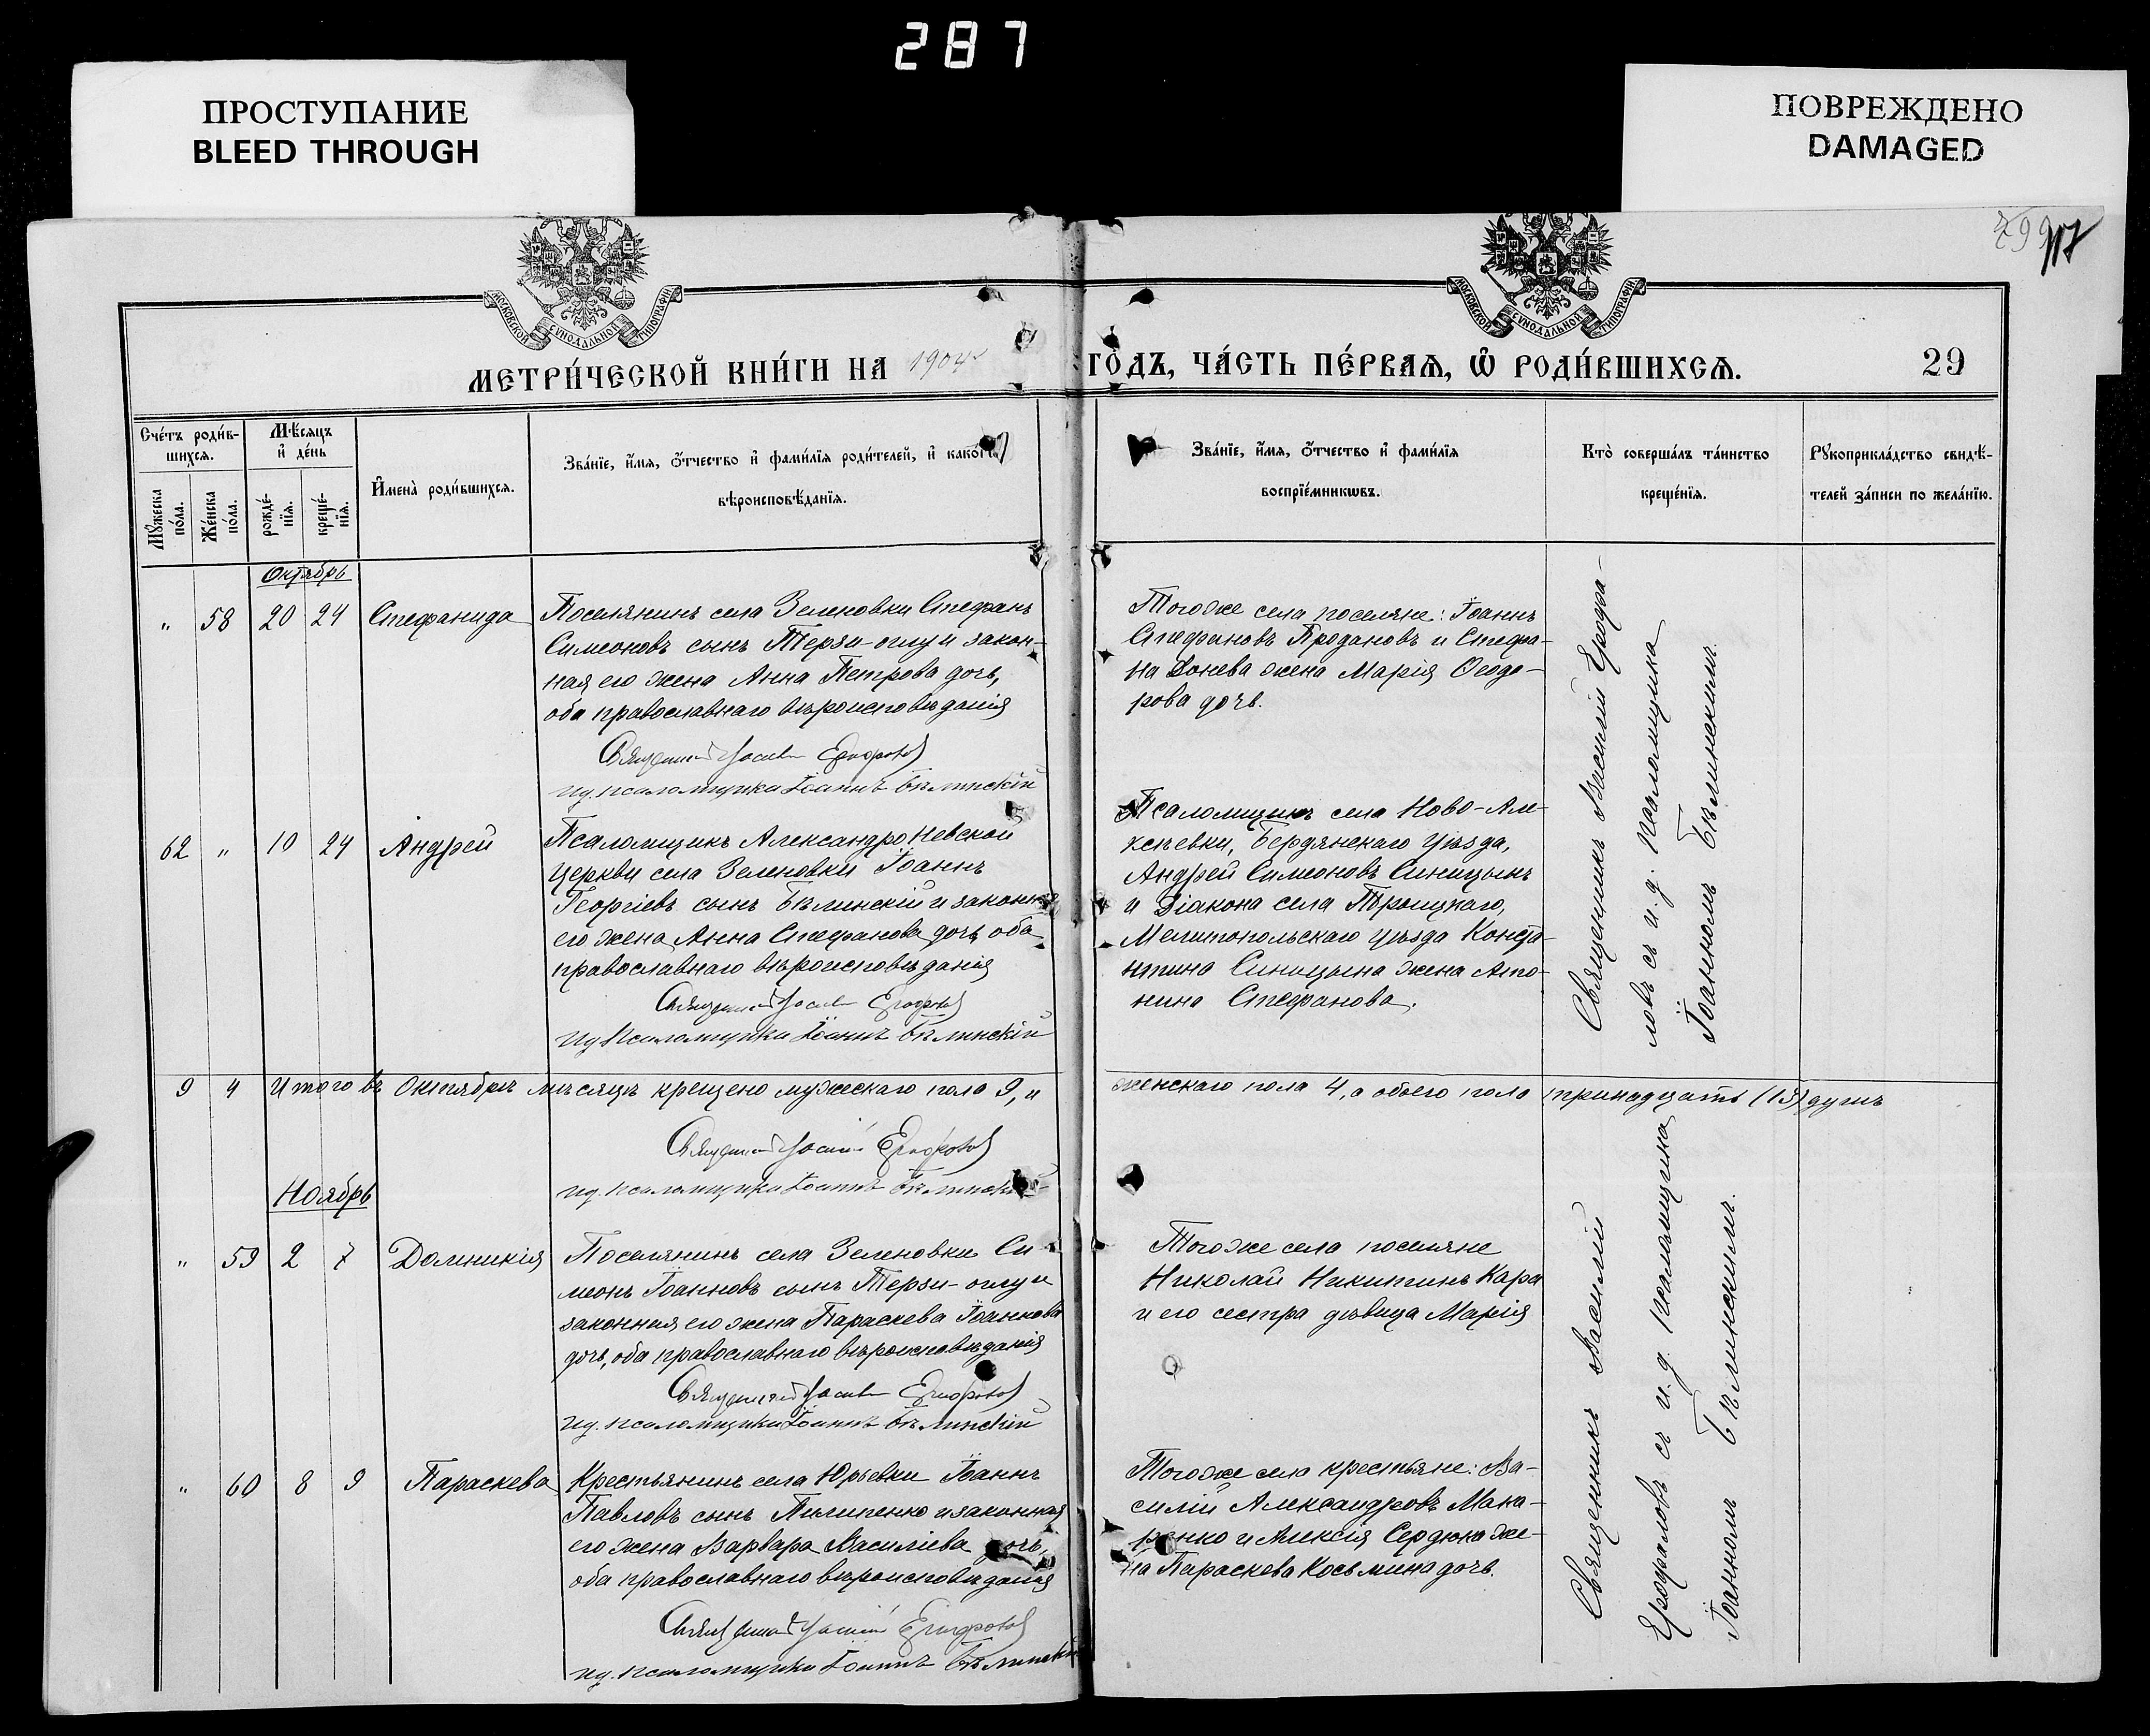 287
ПРОСТУПАНИЕ
BLEED THROUGH
ПОВРЕЖДЕНО
DAMAGED
МОСКОВСКОЙ СѴНОДАЛЬНОЙ ТИПОГРАФІИ
МОСКОВСКОЙ СѴНОДАЛЬНОЙ ТИПОГРАФІИ
МЕТРИ́ЧЕСКОЙ КНИ́ГИ НА 1904 ГО́ДЪ, ЧА́СТЬ ПЕ́РВАѦ, Ѡ҆ РОДИ́ВШИХСѦ. 29
Сче́тъ роди́в-
шихсѧ.
Мѣ́сѧцъ
и҆ де́нь
Мꙋ́жеска
по́ла.
Же́нска
по́ла.
рожде́-
нїѧ.
креще́-
нїѧ.
И҆мена̀ роди́вшихсѧ.
Зва́нїе, и҆́мѧ, ѻ҆́тчество и҆ фами́лїѧ роди́телей, и҆ како́гѡ
вѣроисповѣ́данїѧ.
Зва́нїе, и҆́мѧ, ѻ҆́тчество и҆ фами́лїѧ
воспрїе́мникѡвъ.
Кто̀ соверша́лъ та́инство
креще́нїѧ.
Рꙋкоприкла́дство свидѣ́-
телей за́писи по жела́нїю.
Октябрь
" 58 20 24 Стефанида
Поселянинъ села Зеленовки Стефанъ
Симеоновъ сынъ Терзи-оглу и закон-
ная его жена Анна Петрова дочь,
оба православнаго вѣроисповѣданія
Священникъ Василій Ерофаловъ
ид. псаломщика Іоаннъ Бѣлинскій
Тогоже села поселяне: Іоаннъ
Стефановъ Продановъ и Стефа-
на Донева жена Марія Ѳеодо-
рова дочь.
62 " 10 24 Андрей
Псаломщикъ Александро Невской
церкви села Зеленовки Іоаннъ
Георгіевъ сынъ Бѣлинскій и законн
его жена Анна Стефанова дочь, оба
православнаго вѣроисповѣданія
Священникъ Василій Ерофаловъ
ид. псаломщика Іоаннъ Бѣлинскій
Псаломщикъ села Ново-Але-
ксѣевки, Бердянскаго уѣзда,
Андрей Симеоновъ Синицынъ
и Діакона села Троицкаго,
Мелитопольскаго уѣзда Конста-
нтина Синицына жена Анто-
нина Стефанова.
Священникъ Василій Ерофа-
ловъ съ и.д. псаломщика
Іоанномъ Бѣлинскимъ.
9 4 Итого въ Октябрѣ мѣсяцѣ крещено мужескаго пола 9, и женскаго пола 4, а обоего пола тринадцать (13) душъ
Священникъ Василій Ерофаловъ
ид. псаломщика Іоаннъ Бѣлинскій
Ноябрь
" 59 2 7 Домникія
Поселянинъ села Зеленовки Си-
меонъ Іоанновъ сынъ Терзи-оглу и
законная его жена Параскева Іоаннова
дочь, оба православнаго вѣроисповѣданія
Священникъ Василій Ерофаловъ
ид. псаломщика Іоаннъ Бѣлинскій
Тогоже села поселяне
Николай Никитинъ Кара
и его сестра дѣвица Марія
" 60 8 9 Параскева
Крестьянинъ села Юрьевки Іоаннъ
Павловъ сынъ Пилипенко и законная
его жена Варвара Василіева дочь,
оба православнаго вѣроисповѣданія
Священникъ Василій Ерофаловъ
ид. псаломщика Іоаннъ Бѣлинскій
Тогоже села крестьяне: Ва-
силій Александровъ Мака-
ренко и Алексія Сердюка же-
на Параскева Косьмина дочь.
Священникъ Василій
Ерофаловъ съ и.д. псаломщика
Іоанномъ Бѣлинскимъ.